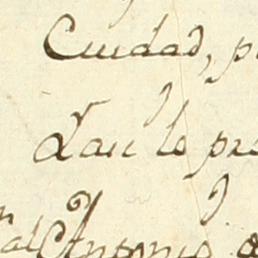 Ciudad, p
Lau lo pre
al Antonio